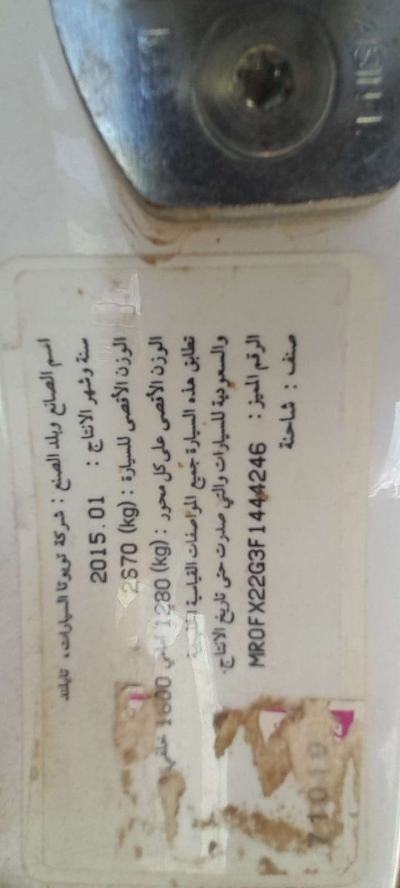 اسم الصانع وبلد الصنع : شركة تويوتا للسيارات، تايلند
سنة وشهر الانتاج : 2015.01
الوزن الأقصى للسيارة : (kg) 2670
الوزن الأقصى على كل محور : (kg) 1280 أمامي 1600 خلفي
تطابق هذه السيارة جميع المواصفات القياسية الخليجية
والسعودية للسيارات والتي صدرت حتى تاريخ الانتاج.
الرقم المميز : MR0FX22G3F1444246
صنف : شاحنة